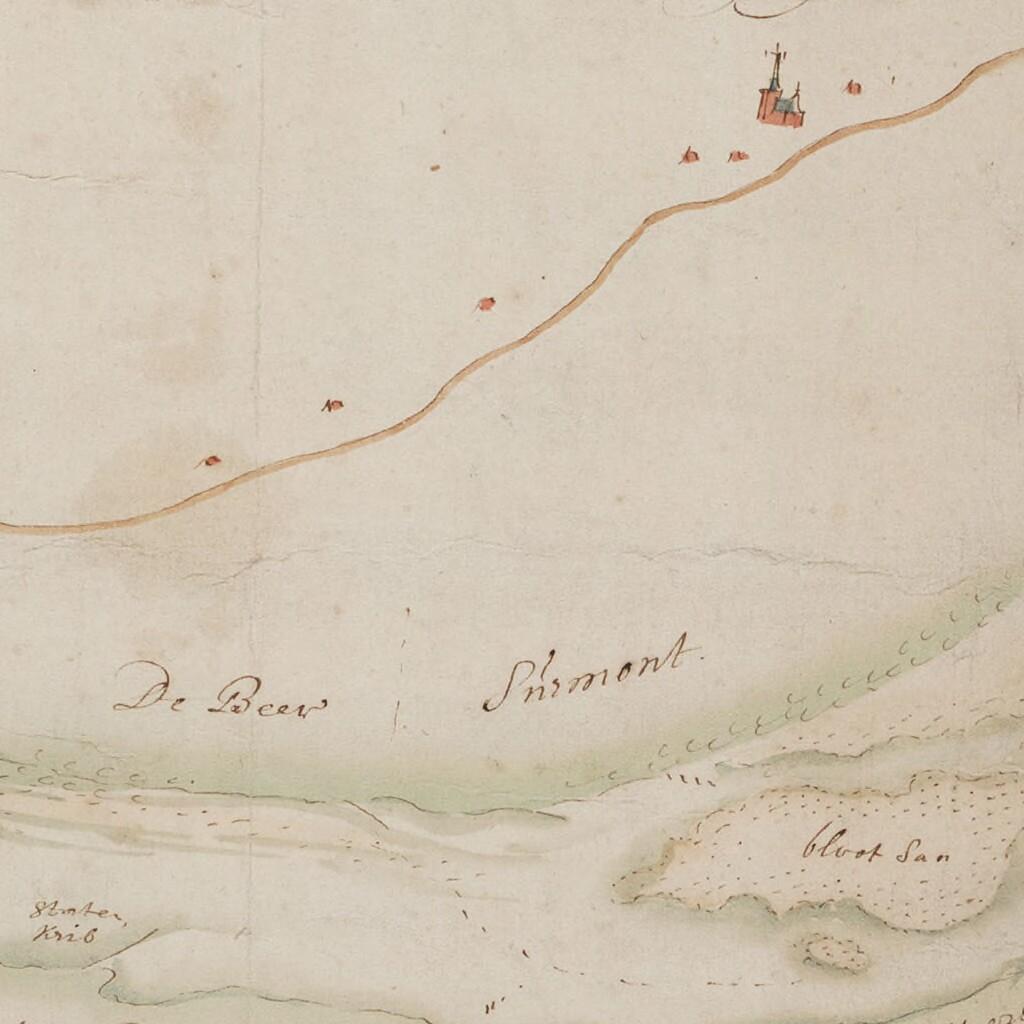 De Beer
Surmont.
bloot San
Staten
Krib